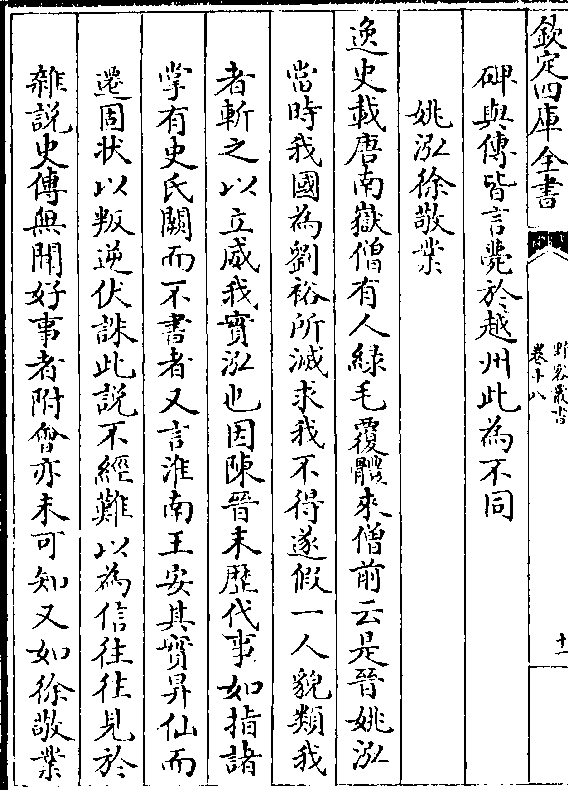 欽定四庫全書
野客叢書
卷十八
十一
碑與傳皆言薨於越州此為不同
姚泓徐敬業
逸史載唐南嶽僧有人緑毛覆體來僧前云是晉姚泓
當時我國為劉裕所滅求我不得遂假一人貌類我
者斬之以立威我實泓也因陳晉末歴代事如指諸
掌有史氏闕而不書者又言淮南王安其實昇仙而
遷固状以叛逆伏誅此説不經難以為信往往見於
雜説史傳無聞好事者附會亦未可知又如徐敬業